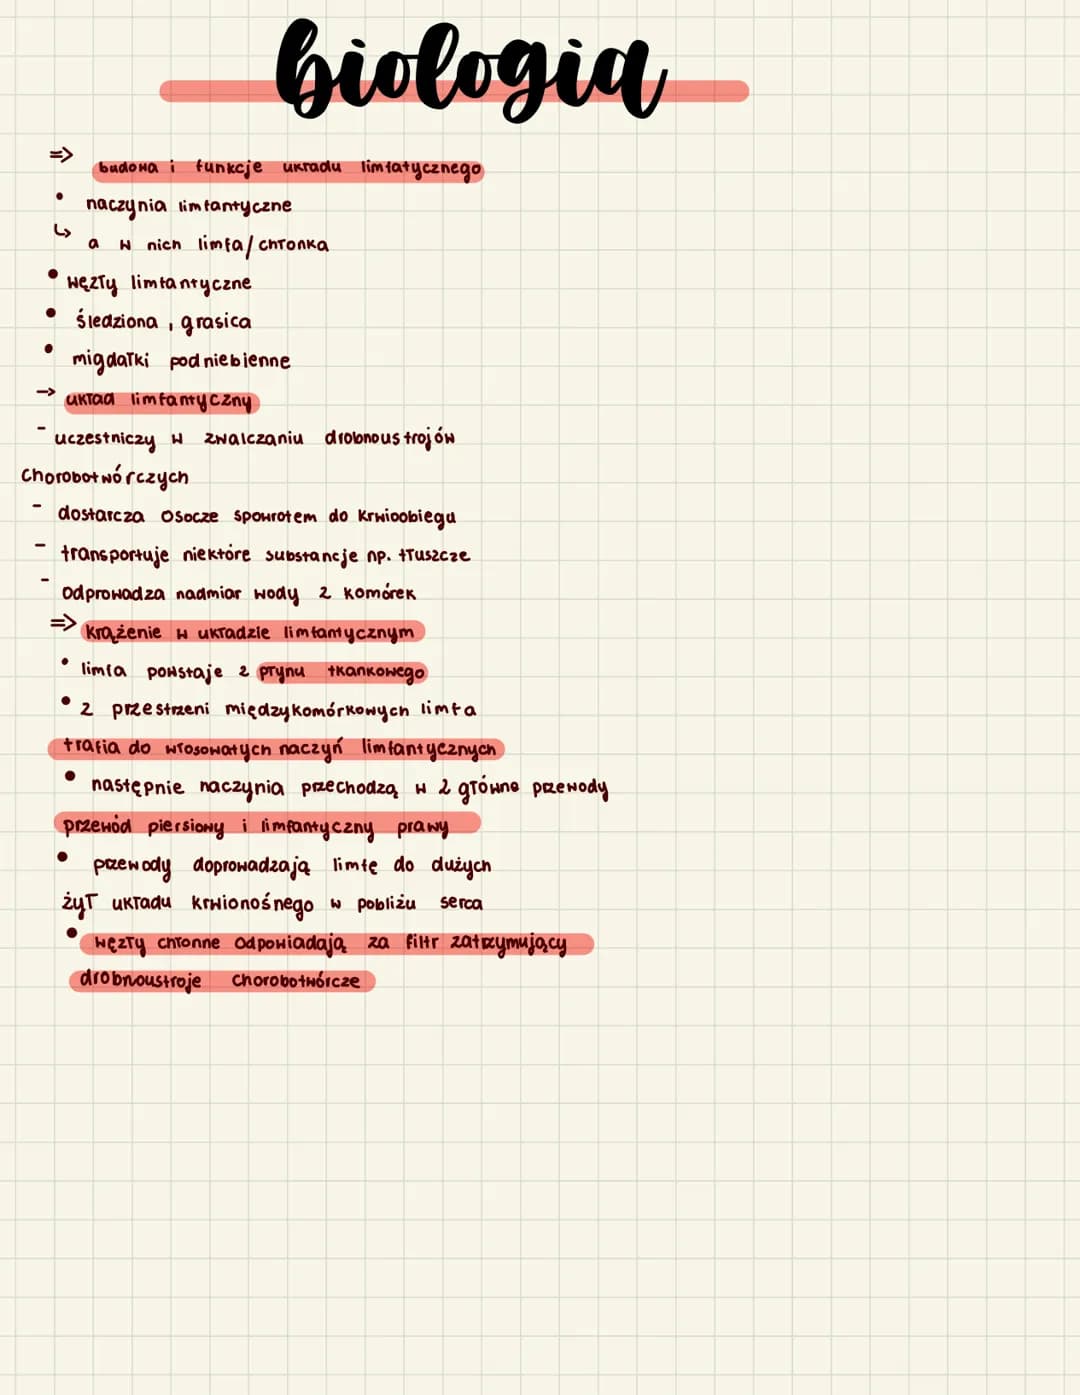 biologia
=> budowa i funkcje układu limfatycznego
• naczynia limfantyczne
↳ a w nich limfa/chłonka
• węzły limfantyczne
• śledziona, grasica
• migdałki podniebienne
→ układ limfantyczny
- uczestniczy w zwalczaniu drobnoustrojów
chorobotwórczych
- dostarcza osocze spowrotem do krwioobiegu
- transportuje niektóre substancje np. tłuszcze
- odprowadza nadmiar wody z komórek
=> krążenie w układzie limfantycznym
• limfa powstaje z płynu tkankowego
• z przestrzeni międzykomórkowych limfa
trafia do włosowatych naczyń limfantycznych
• następnie naczynia przechodzą w 2 główne przewody
przewód piersiowy i limfantyczny prawy
• przewody doprowadzają limfę do dużych
żył układu krwionośnego w pobliżu serca
• węzły chłonne odpowiadają za filtr zatrzymujący
drobnoustroje chorobotwórcze